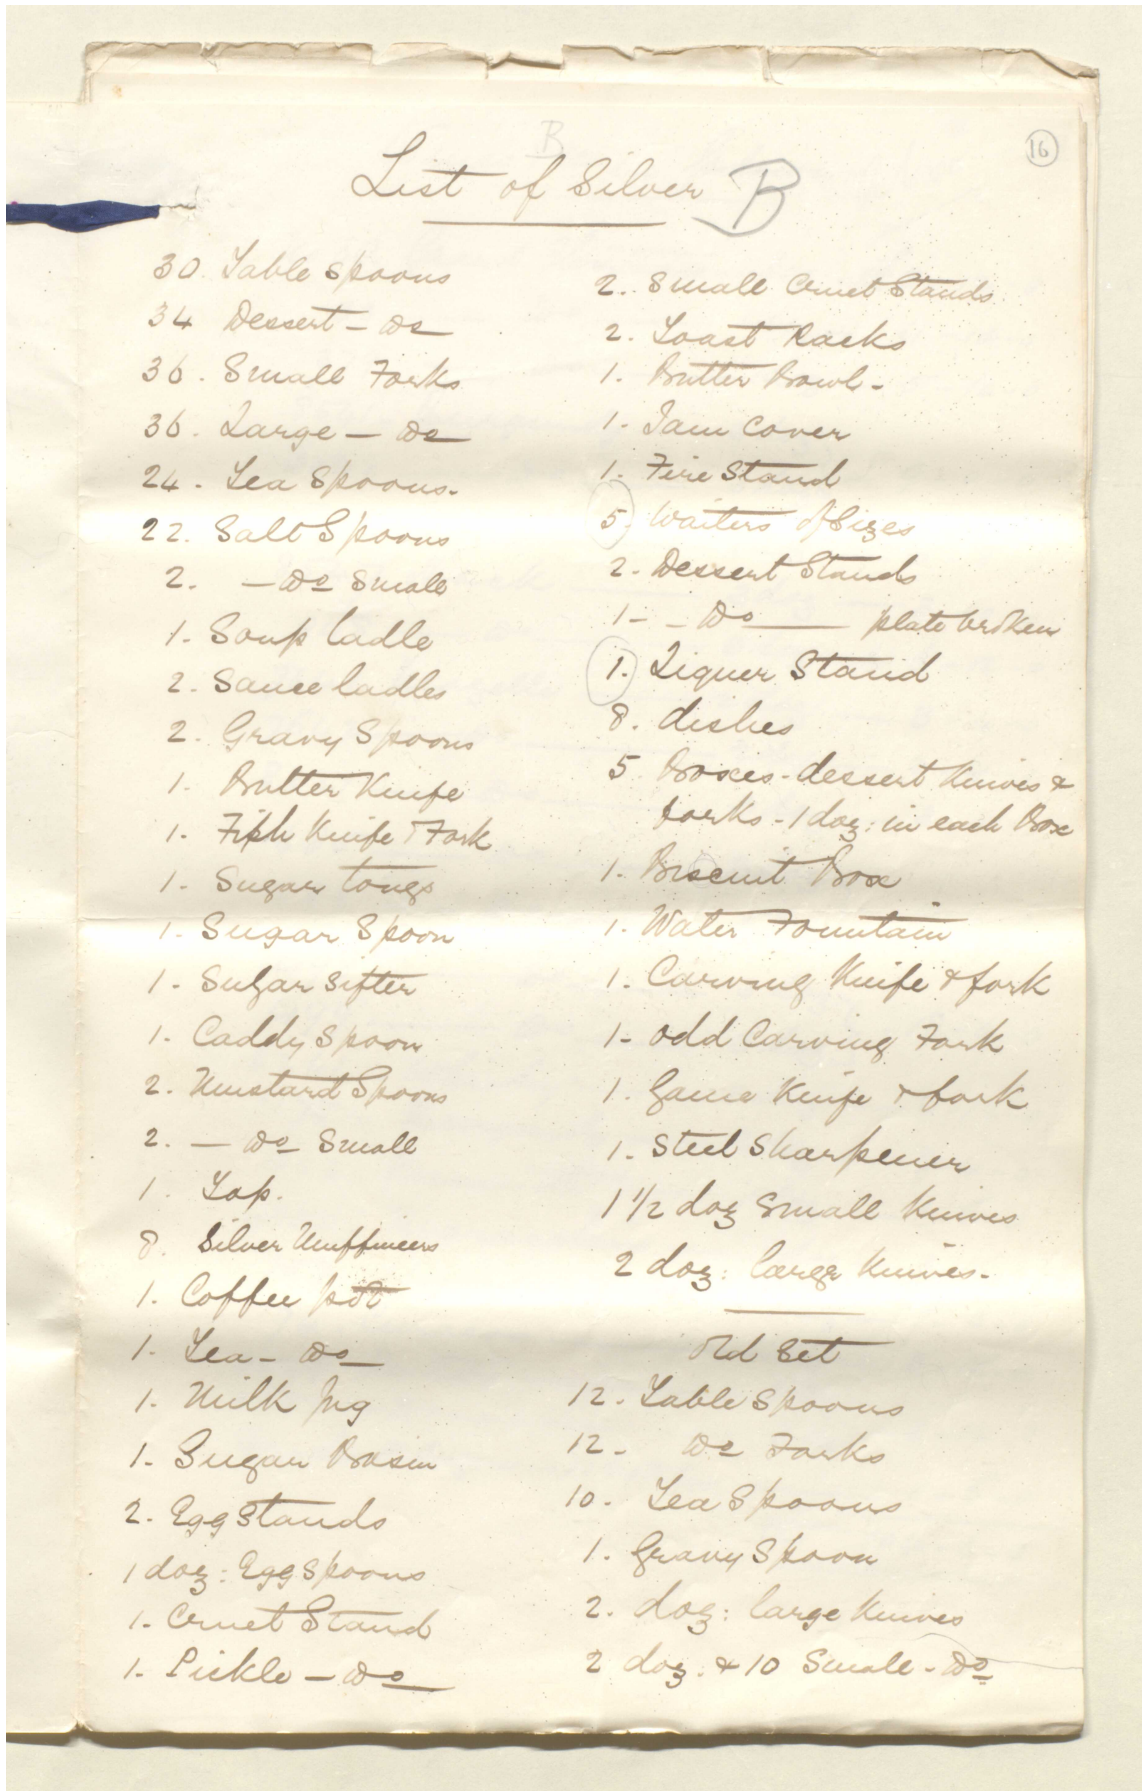 16
B
List of Silver B
30. Table Spoons
34 Dessert - Do
36. Small Forks
36. Large - Do
24. Tea Spoons.
22. Salt Spoons
2. - Do Small
1. Soup ladle
2. Sauce ladles
2. Gravy Spoons
1. Butter Knife
1. Fish Knife & Fork
1. Sugar tongs
1. Sugar Spoon
1. Sugar Sifter
1. Caddy Spoon
2. Mustard Spoons
2. - Do Small
1. Top.
8. Silver Muffineers
1. Coffee pot
1. Tea - Do
1. Milk Jug
1. Sugar Basin
2. Egg Stands
1 doz: Egg Spoons
1. Cruet Stand
1. Pickle - Do
2. Small Cruet Stands
2. Toast Racks
1. Butter Bowl -
1. Jam Cover
1. Fire Stand
5. Waiters of Sizes
2. Dessert Stands
1 - - Do plate broken
1. Liquer Stand
8. dishes
5 Boxes - dessert Knives &
forks - 1 doz: in each Box
1. Biscuit Box
1. Water Fountain
1. Carving Knife & fork
1 - odd Carving Fork
1. Game Knife & fork
1. Steel Sharpener
1 1/2 doz Small Knives
2 doz: large Knives.
Old Set
12. Table Spoons
12 - Do Forks
10. Tea Spoons
1. Gravy Spoon
2. doz: large Knives
2 doz: & 10 Small - Do